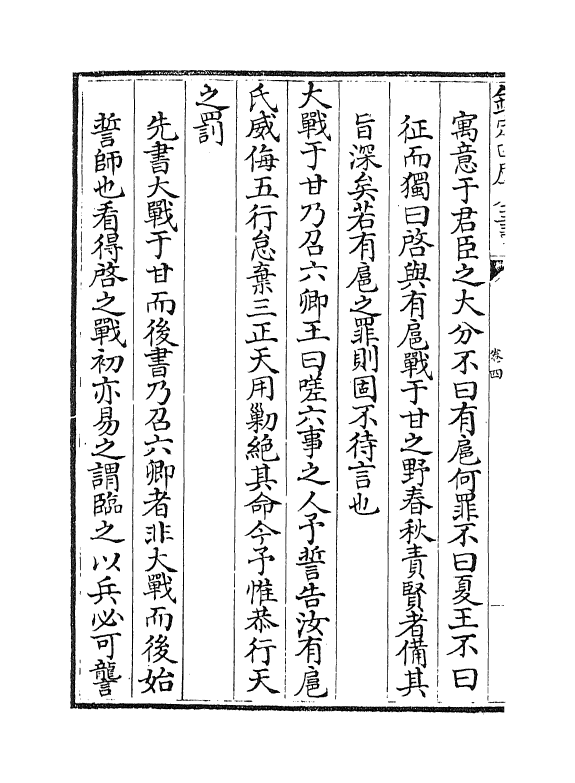 欽定四庫全書
卷四
寓意于君臣之大分不曰有扈何罪不曰夏王不曰
征而獨曰啓與有扈戰于甘之野春秋責賢者備其
旨深矣若有扈之罪則固不待言也
大戰于甘乃召六卿王曰嗟六事之人予誓告汝有扈
氏威侮五行怠棄三正天用勦絶其命今予惟恭行天
之罰
先書大戰于甘而後書乃召六卿者非大戰而後始
誓師也看得啓之戰初亦易之謂臨之以兵必可讋